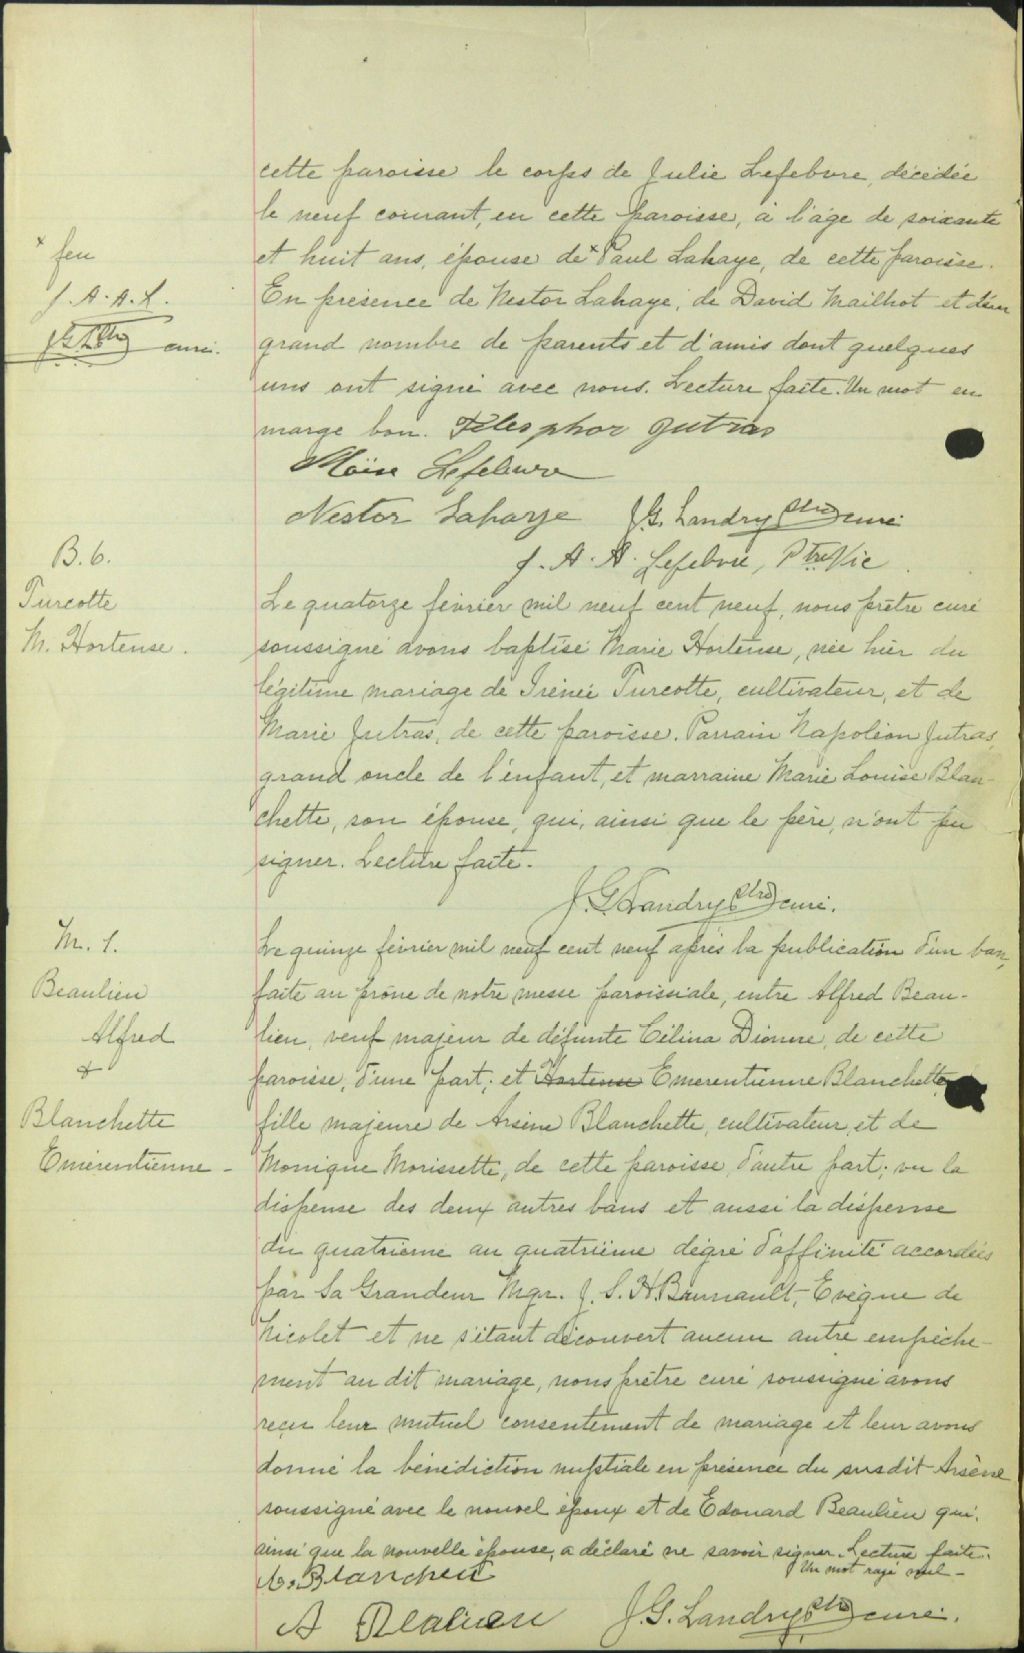 cette paroisse le corps de Julie Lefebvre, décédée
le neuf courant, en cette paroisse, à l'âge de soixante
et huit ans, épouse de x Paul Lahaye, de cette paroisse.
x feu
J. A. A. L.
J G L Ptre curé.
En présence de Nestor Lahaye, de David Mailhot et d'un
grand nombre de parents et d'amis dont quelques
uns ont signé avec nous. Lecture faite. Un mot en
marge bon. Télesphor Jutras
Moïse Lefebvre
Nestor Lahaye J. G. Landry Ptre curé
J. A. A. Lefebvre, Ptre Vic
B. 6.
Turcotte
M. Hortense.
Le quatorze février mil neuf cent neuf, nous prêtre curé
soussigné avons baptisé Marie Hortense, née hier du
légitime mariage de Irénée Turcotte, cultivateur, et de
Marie Jutras, de cette paroisse. Parrain Napoléon Jutras,
grand oncle de l'enfant, et marraine Marie Louise Blan-
chette, son épouse, qui, ainsi que le père, n'ont pu
signer. Lecture faite.
J. G. Landry Ptre curé.
M. 1.
Beaulieu
Alfred
&
Blanchette
Emérentienne -
Le quinze février mil neuf cent neuf après la publication d'un ban,
faite au prône de notre messe paroissiale, entre Alfred Beau-
lieu, veuf majeur de défunte Célina Dionne, de cette
paroisse, d'une part; et Hortense Emerentienne Blanchette,
fille majeure de Arsène Blanchette, cultivateur, et de
Monique Morissette, de cette paroisse, d'autre part; vu la
dispense des deux autres bans et aussi la dispense
du quatrième au quatrième degré d'affinité accordées
par Sa Grandeur Mgr. J. S. H. Brunault, Evêque de
Nicolet et ne s'étant découvert aucun autre empêche-
ment au dit mariage, nous prêtre curé soussigné avons
reçu leur mutuel consentement de mariage et leur avons
donné la bénédiction nuptiale en présence du susdit Arsène
soussigné avec le nouvel époux et de Edouard Beaulieu qui,
ainsi que la nouvelle épouse, a déclaré ne savoir signer. Lecture faite.
Un mot rayé nul -
A Bealieu J. G. Landry Ptre curé.